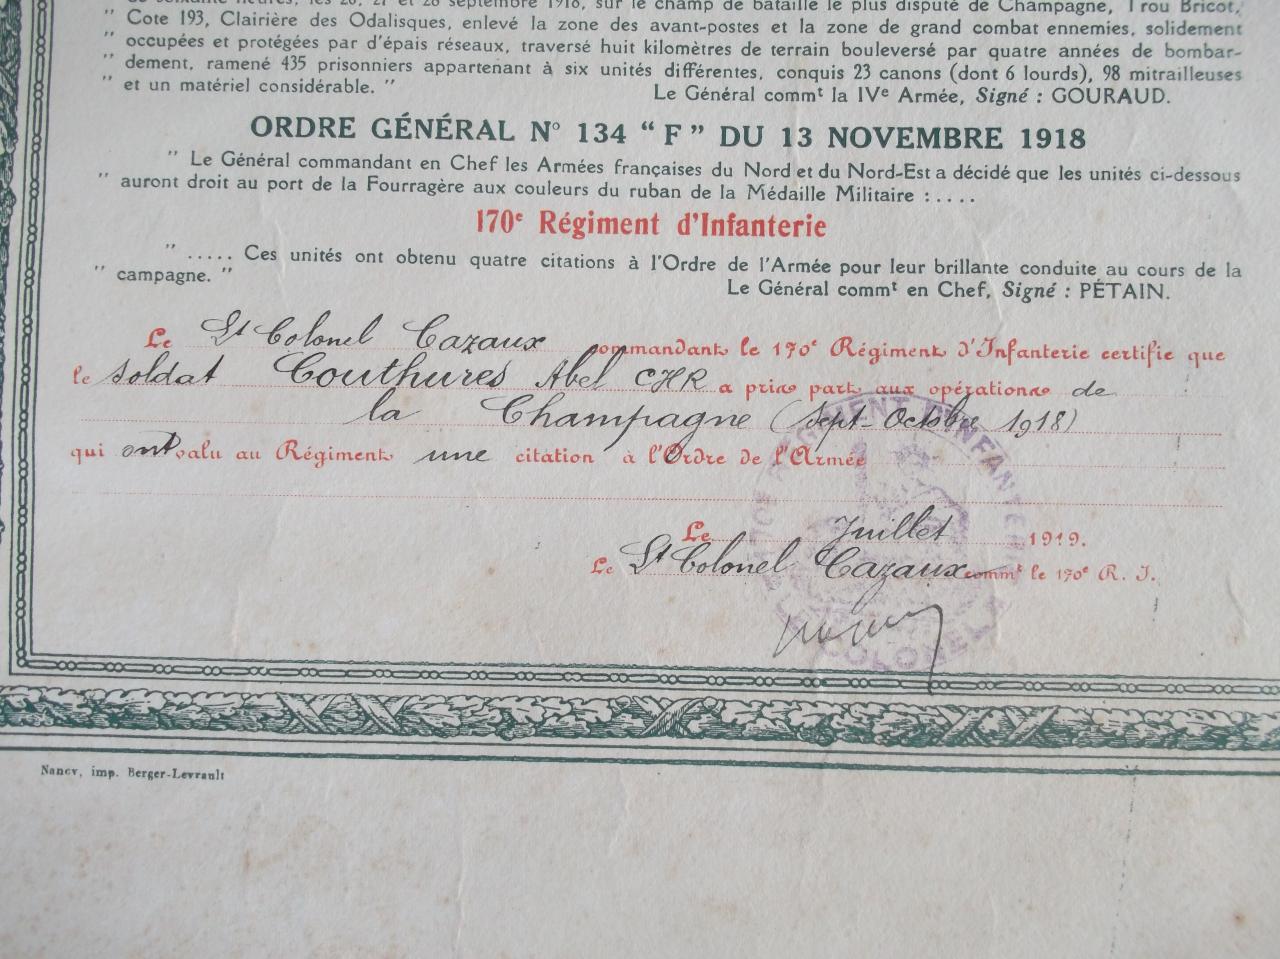 soixante heures, les 26, 27 et 28 septembre 1918, sur le champ de bataille le plus disputé de Champagne, Trou Bricot,
" Cote 193, Clairière des Odalisques, enlevé la zone des avant-postes et la zone de grand combat ennemies, solidement
" occupées et protégées par d'épais réseaux, traversé huit kilomètres de terrain bouleversé par quatre années de bombar-
" dement, ramené 435 prisonniers appartenant à six unités différentes, conquis 23 canons (dont 6 lourds), 98 mitrailleuses
" et un matériel considérable. "
Le Général commt la IVe Armée, Signé : GOURAUD.
ORDRE GÉNÉRAL No 134 " F " DU 13 NOVEMBRE 1918
" Le Général commandant en Chef les Armées françaises du Nord et du Nord-Est a décidé que les unités ci-dessous
" auront droit au port de la Fourragère aux couleurs du ruban de la Médaille Militaire : ....
170e Régiment d'Infanterie
" ..... Ces unités ont obtenu quatre citations à l'Ordre de l'Armée pour leur brillante conduite au cours de la
" campagne. "
Le Général commt en Chef, Signé : PÉTAIN.
Le Lt Colonel Cazaux commandant le 170e Régiment d'Infanterie certifie que
le soldat Couthures Abel CHR a pris part aux opérations de
la Champagne (Sept-Octobre 1918)
qui ont valu au Régiment une citation à l'Ordre de l'Armée
Le Juillet 1919.
Le Lt Colonel Cazaux commt le 170e R. I.
RÉGIMENT D'INFANTERIE
LE COLONEL
Nancy, imp. Berger-Levrault